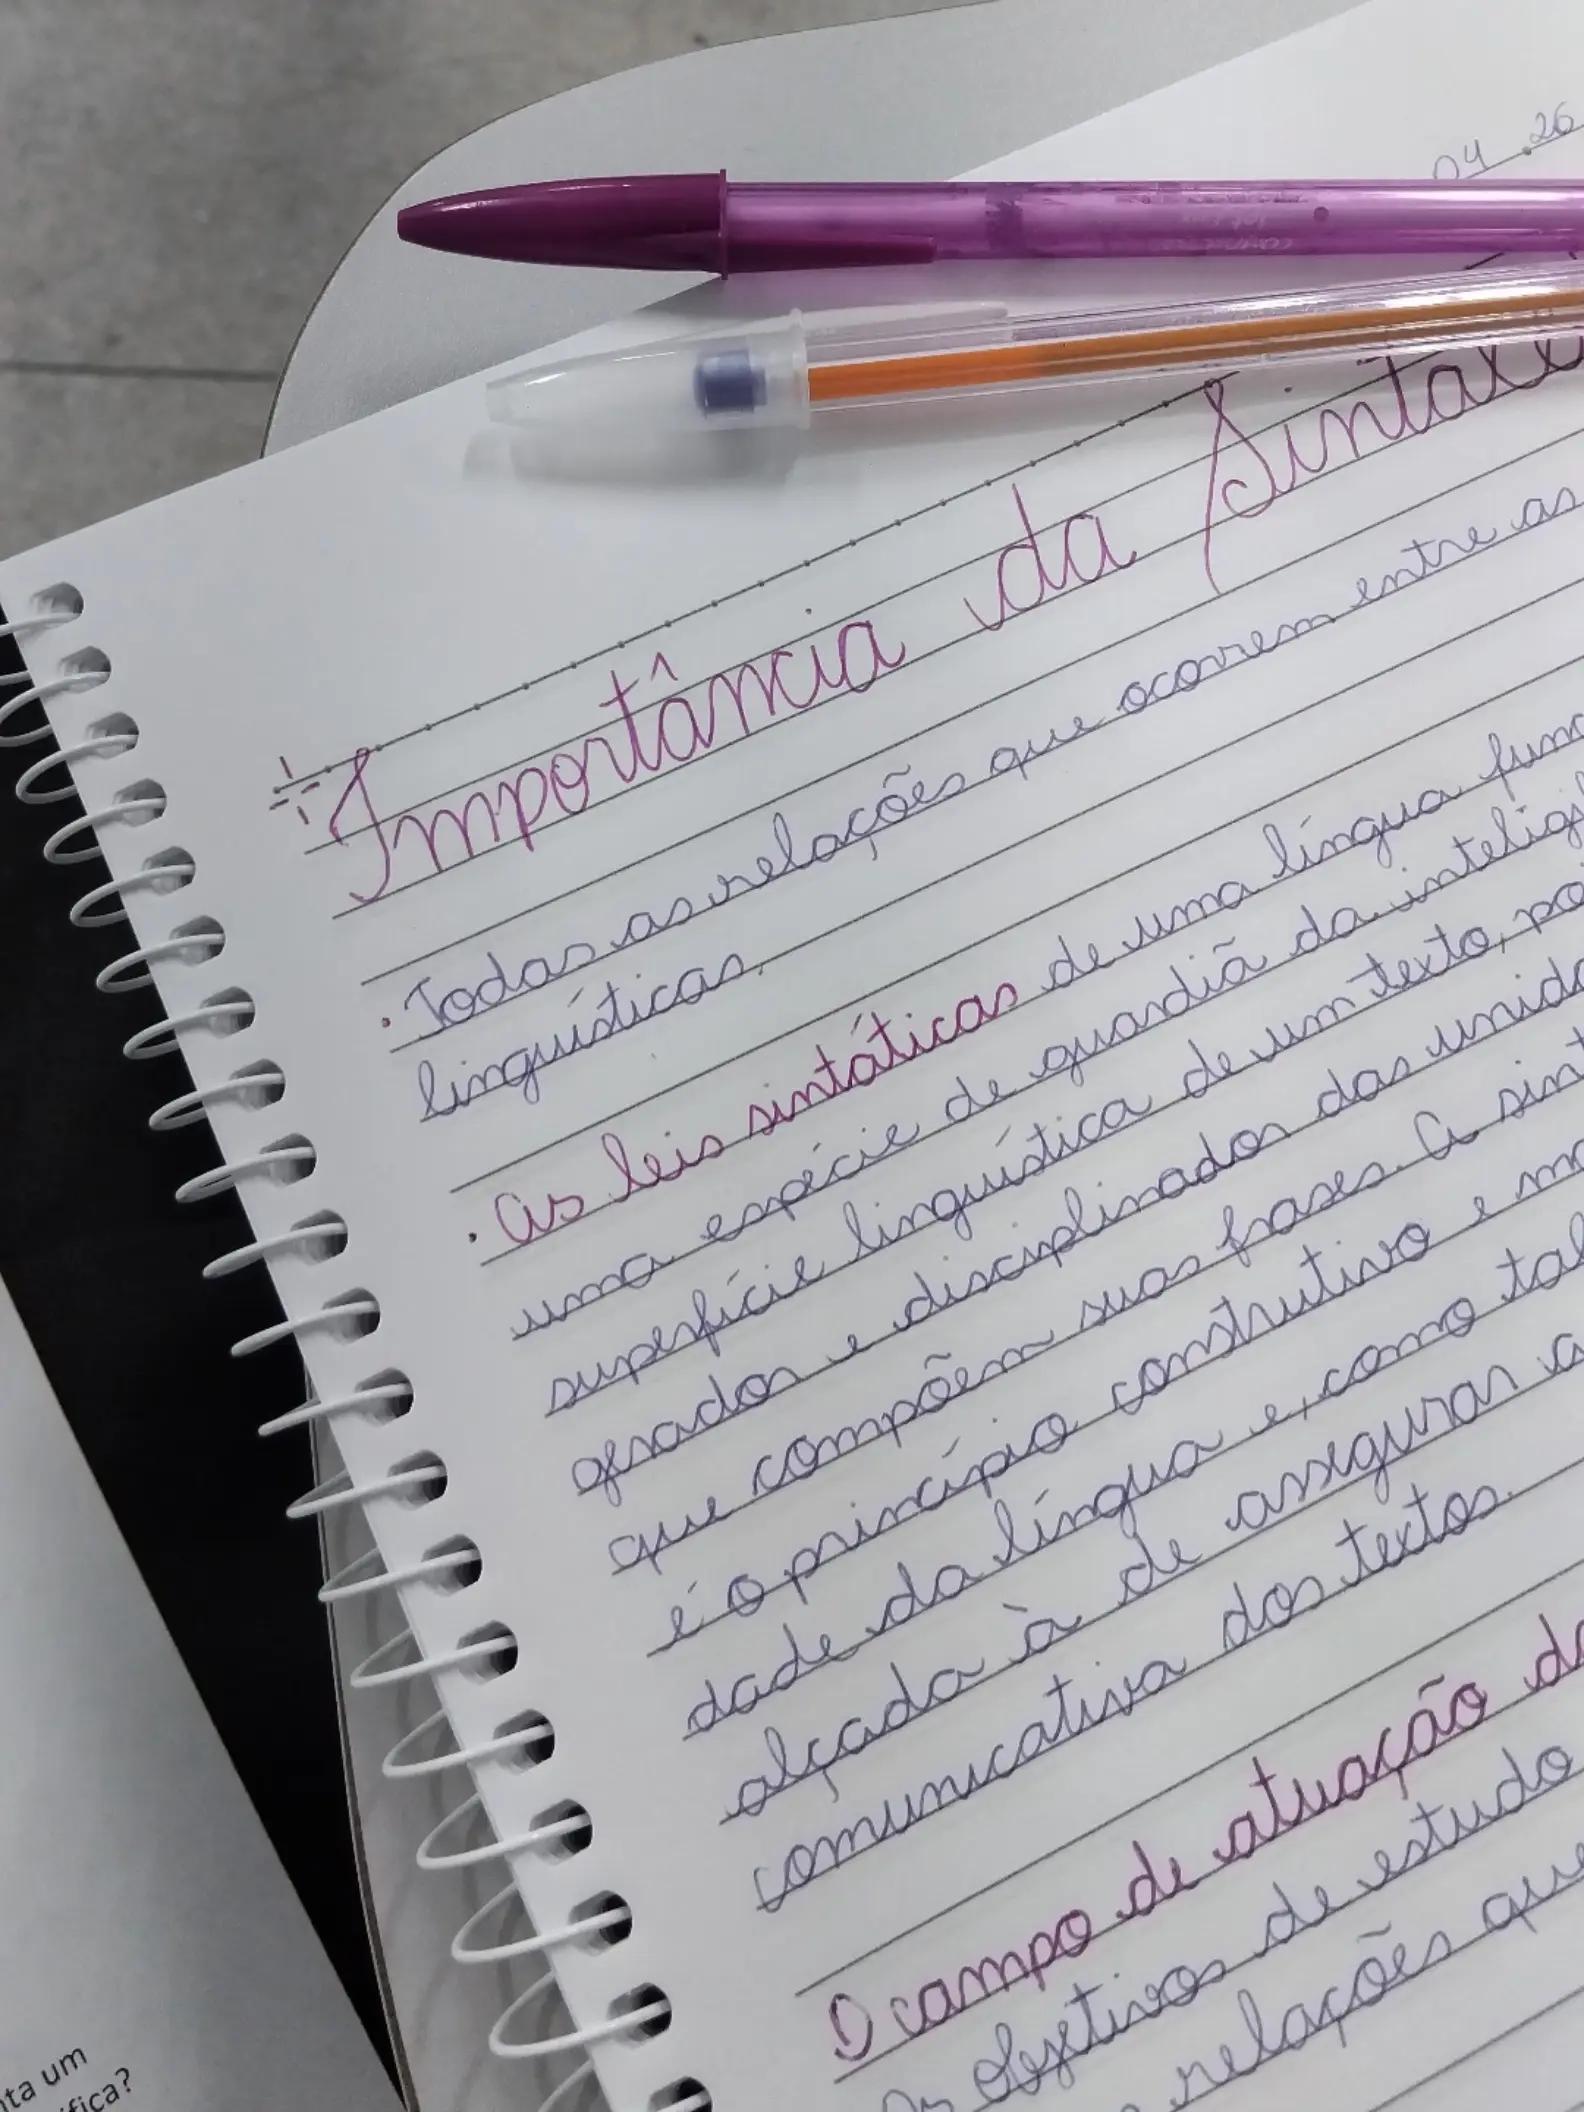 04 . 26
Importância da Sintaxe
• Todas as relações que ocorrem entre as
linguísticas.
• As leis sintáticas de uma língua func
uma espécie de guardiã da inteligi
superfície linguística de um texto, po
gerador e disciplinador das unida
que compõem suas frases. A sint
é o princípio construtivo e ma
dade da língua e, como tal
alçada à de assegurar a
comunicativa dos textos.
O campo de atuação da
Os objetivos de estudo
relações que
ta um
fica?